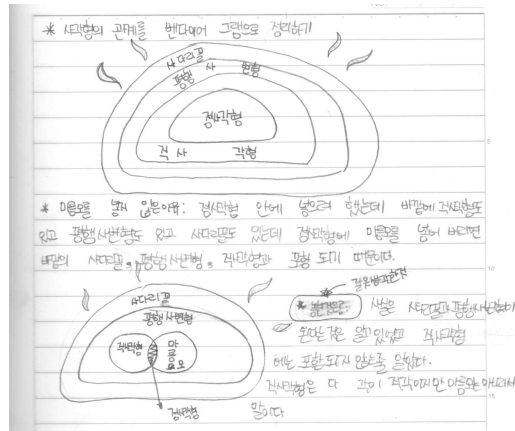 * 사각형의 관계를 벤다이어 그램으로 정리하기
사다리꼴
평행 사 변형
정사각형
직 사 각형
* 마름모를 넣지 않은이유: 정사각형 안에 넣으려 했는데 바깥에 직사각형도
있고 평행사변형도 있고 사다리꼴도 있는데 정사각형에 마름모를 넣어 버리면
바깥의 사다리꼴, 평행사변형, 직사각형과 포함 되기 때문이다.
사다리꼴
평행사변형
직사각형
마름모
정사각형
* 사실은 사다리꼴과 평행사변형이
된다는 것은 알고 있었고 직사각형
에는 포함되지 않는줄 알았다.
직사각형은 다 각이 직각이지만 마름모는 아니라서
말이다